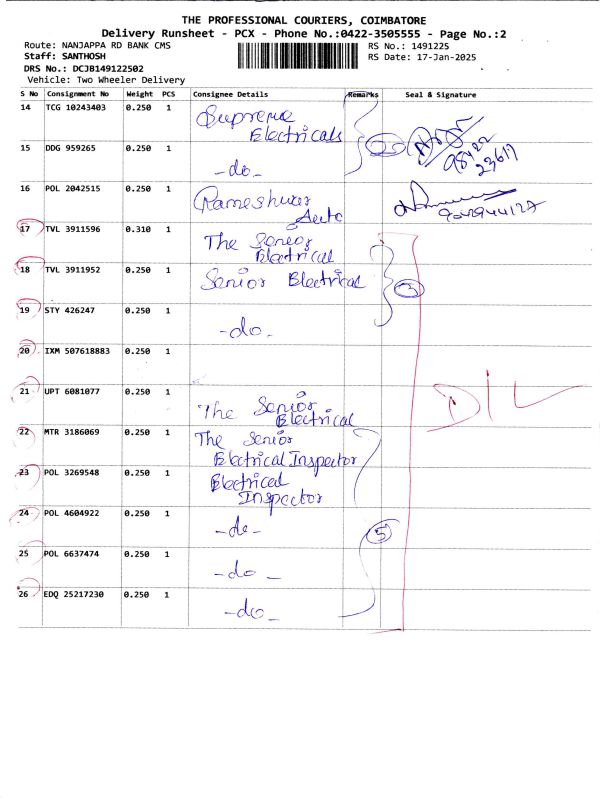 THE PROFESSIONAL COURIERS, COIMBATORE
Delivery Runsheet - PCX - Phone No.:0422-3505555 - Page No.:2
Route: NANJAPPA RD BANK CMS RS No.: 1491225
Staff: SANTHOSH RS Date: 17-Jan-2025
DRS No.: DCJB149122502
Vehicle: Two Wheeler Delivery
S No Consignment No Weight PCS Consignee Details Remarks Seal & Signature
14 TCG 10243403 0.250 1 Supreme
Electricals
15 DDG 959265 0.250 1 -do-
98422
23617
16 POL 2042515 0.250 1 Rameshwar
Auto
17 TVL 3911596 0.310 1 The Senior
Electrical
18 TVL 3911952 0.250 1 Senior Electrical
3
19 STY 426247 0.250 1 -do-
20 IXM 507618883 0.250 1
21 UPT 6081077 0.250 1 The Senior
Electrical
DIL
22 MTR 3186069 0.250 1 The Senior
Electrical Inspector
23 POL 3269548 0.250 1 Electrical
Inspector
24 POL 4604922 0.250 1 -do-
5
25 POL 6637474 0.250 1 -do-
26 EDQ 25217230 0.250 1 -do-